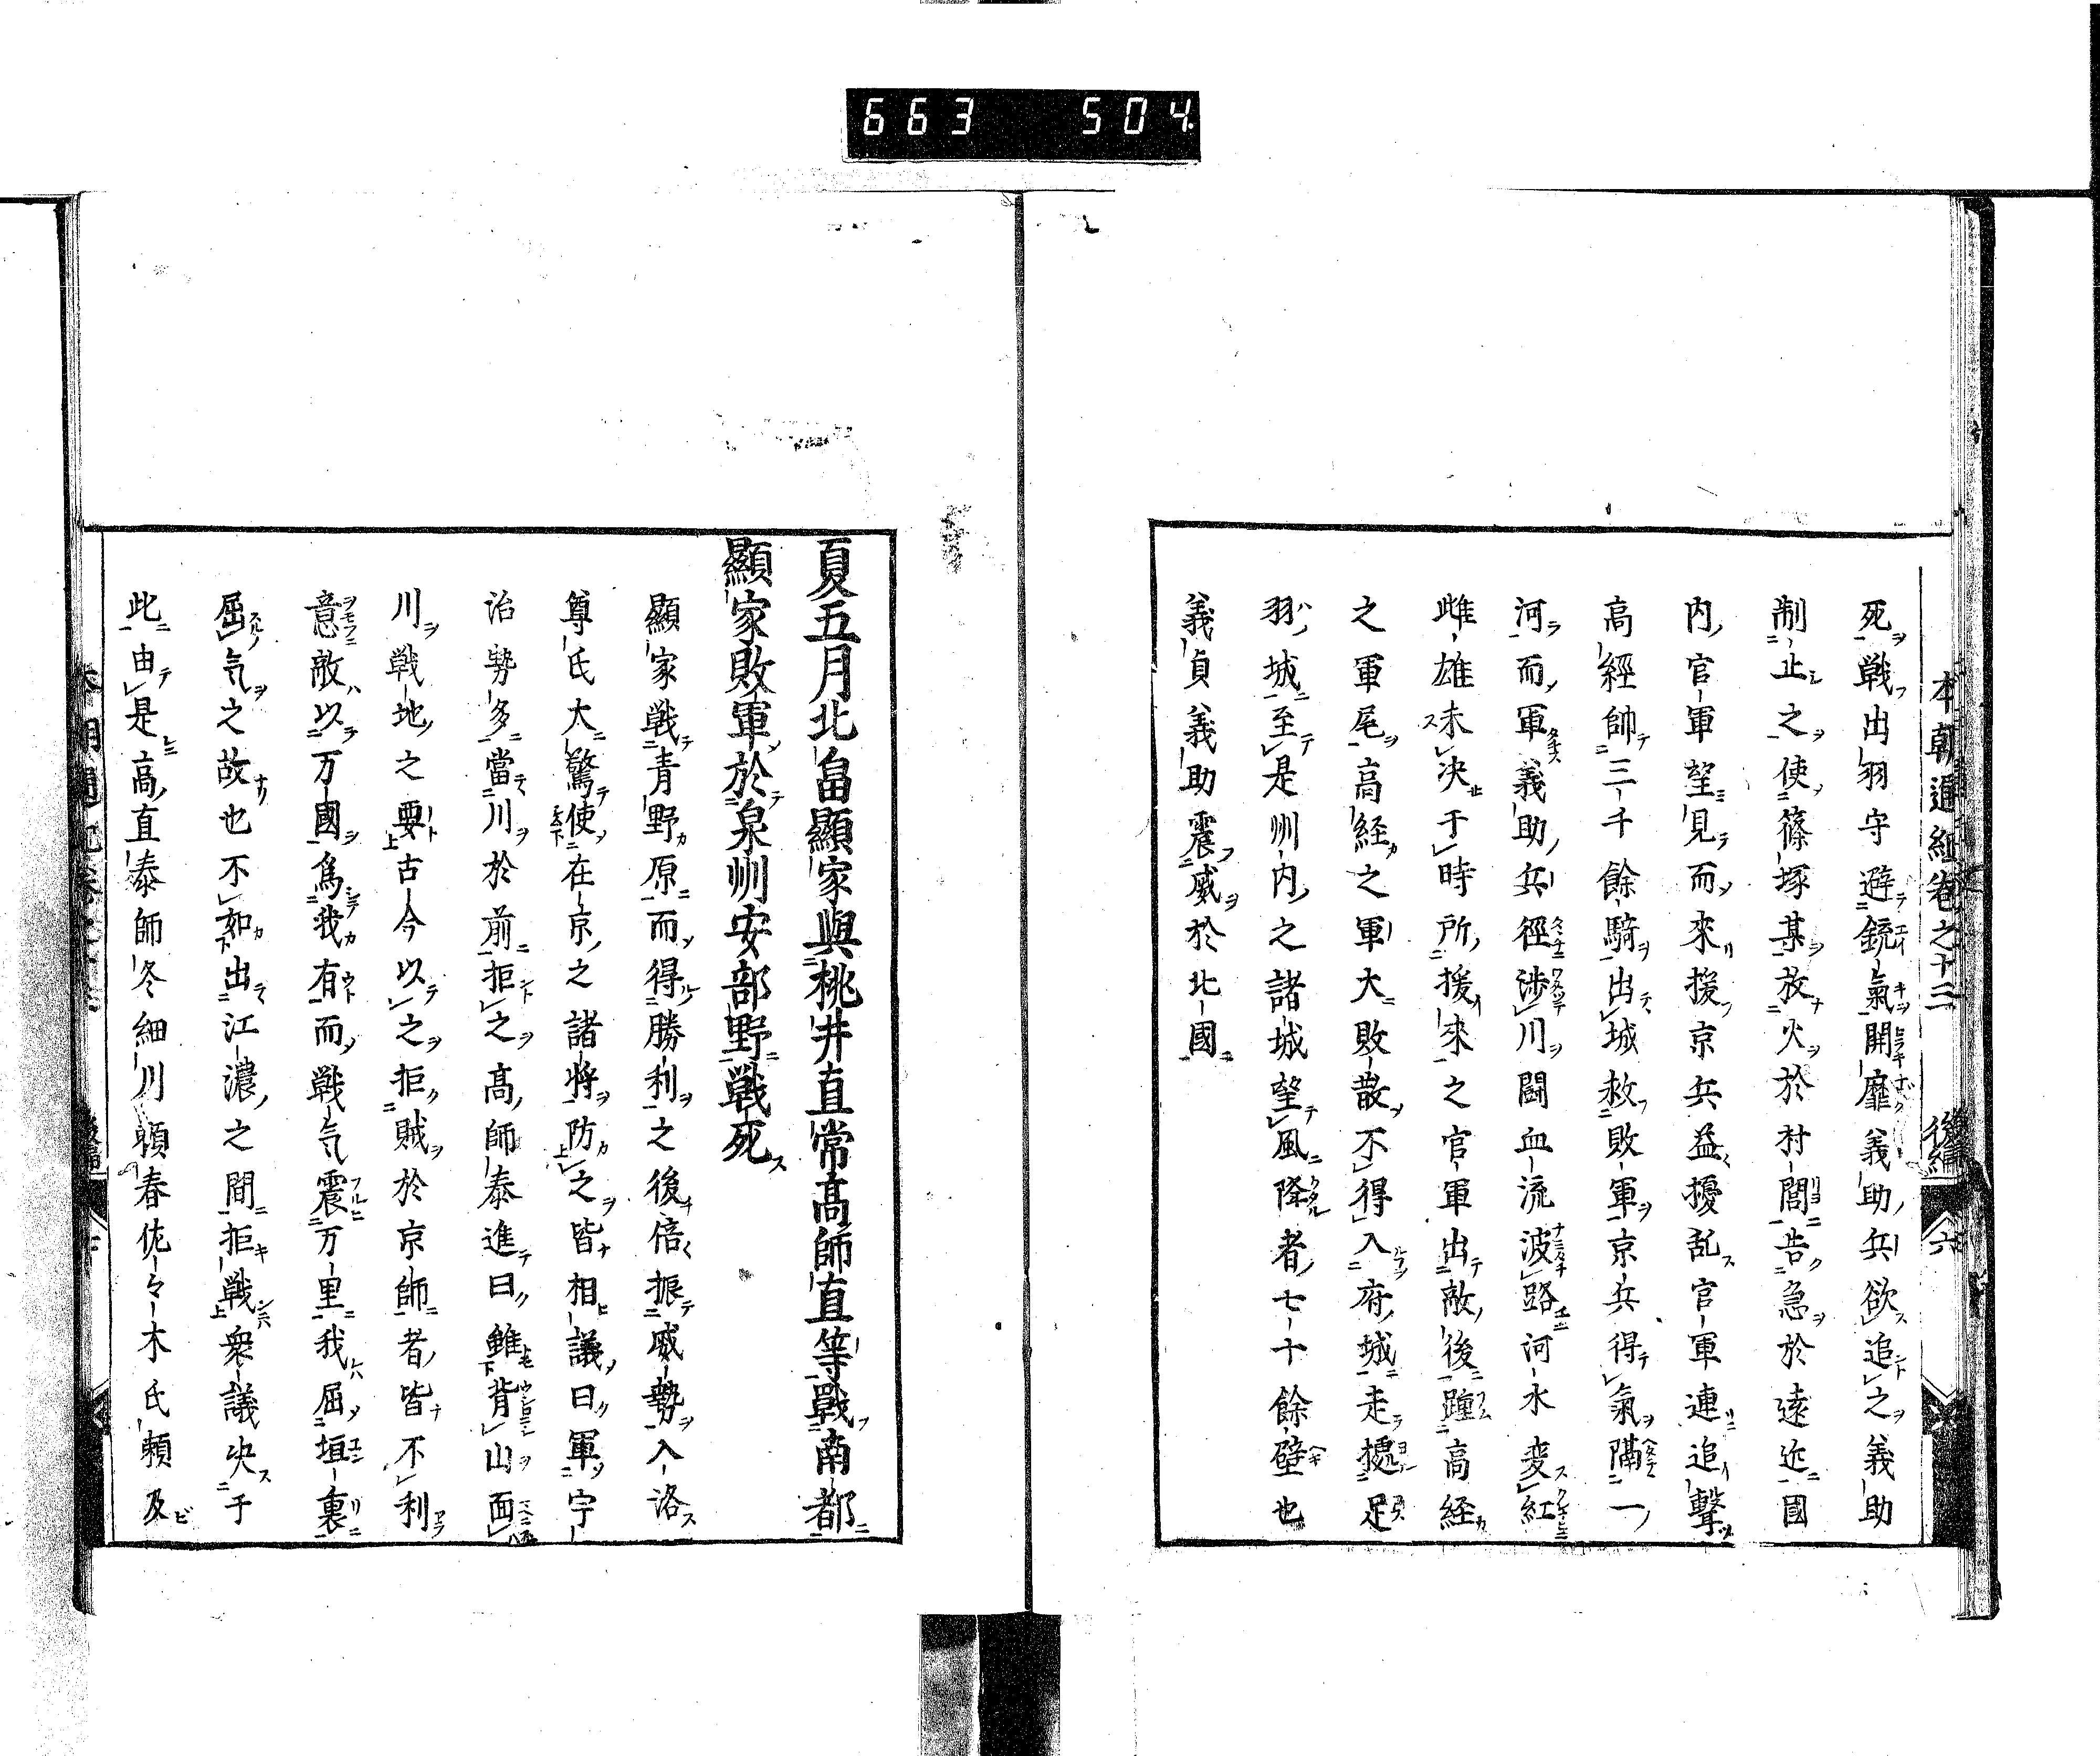 663 504
本朝通紀卷之十三 後編 六
死戦出羽守避銳氣開靡義助兵欲追之義助
制止之使篠塚某放火於村閭告急於遠近國
内官軍望見而來援京兵益擾乱官軍連追擊
高經帥三千餘騎出城救敗軍京兵得氣隔一
河而軍義助兵徑渉川闘血流波路河水変紅
雌雄未决于時所援來之官軍出敵後踵高経
之軍尾高経之軍大敗散不得入府城走據足
羽城至是州内之諸城望風降者七十餘壁也
義貞義助震威於北國
夏五月北畠顯家與桃井直常高師直等戰南都
顯家敗軍於泉州安部野戦死
顯家戦青野原而得勝利之後倍振威勢入洛
尊氏大驚使在京之諸將防之皆相議曰軍宇
治勢多當川於前拒之高師泰進曰雖背山面
川戦地之要古今以之拒賊於京師者皆不利
意敵以万國為我有而戦気震万里我屈垣裏
屈気之故也不如出江濃之間拒戦衆議决于
此由是高直泰師冬細川頼春佐々木氏頼及